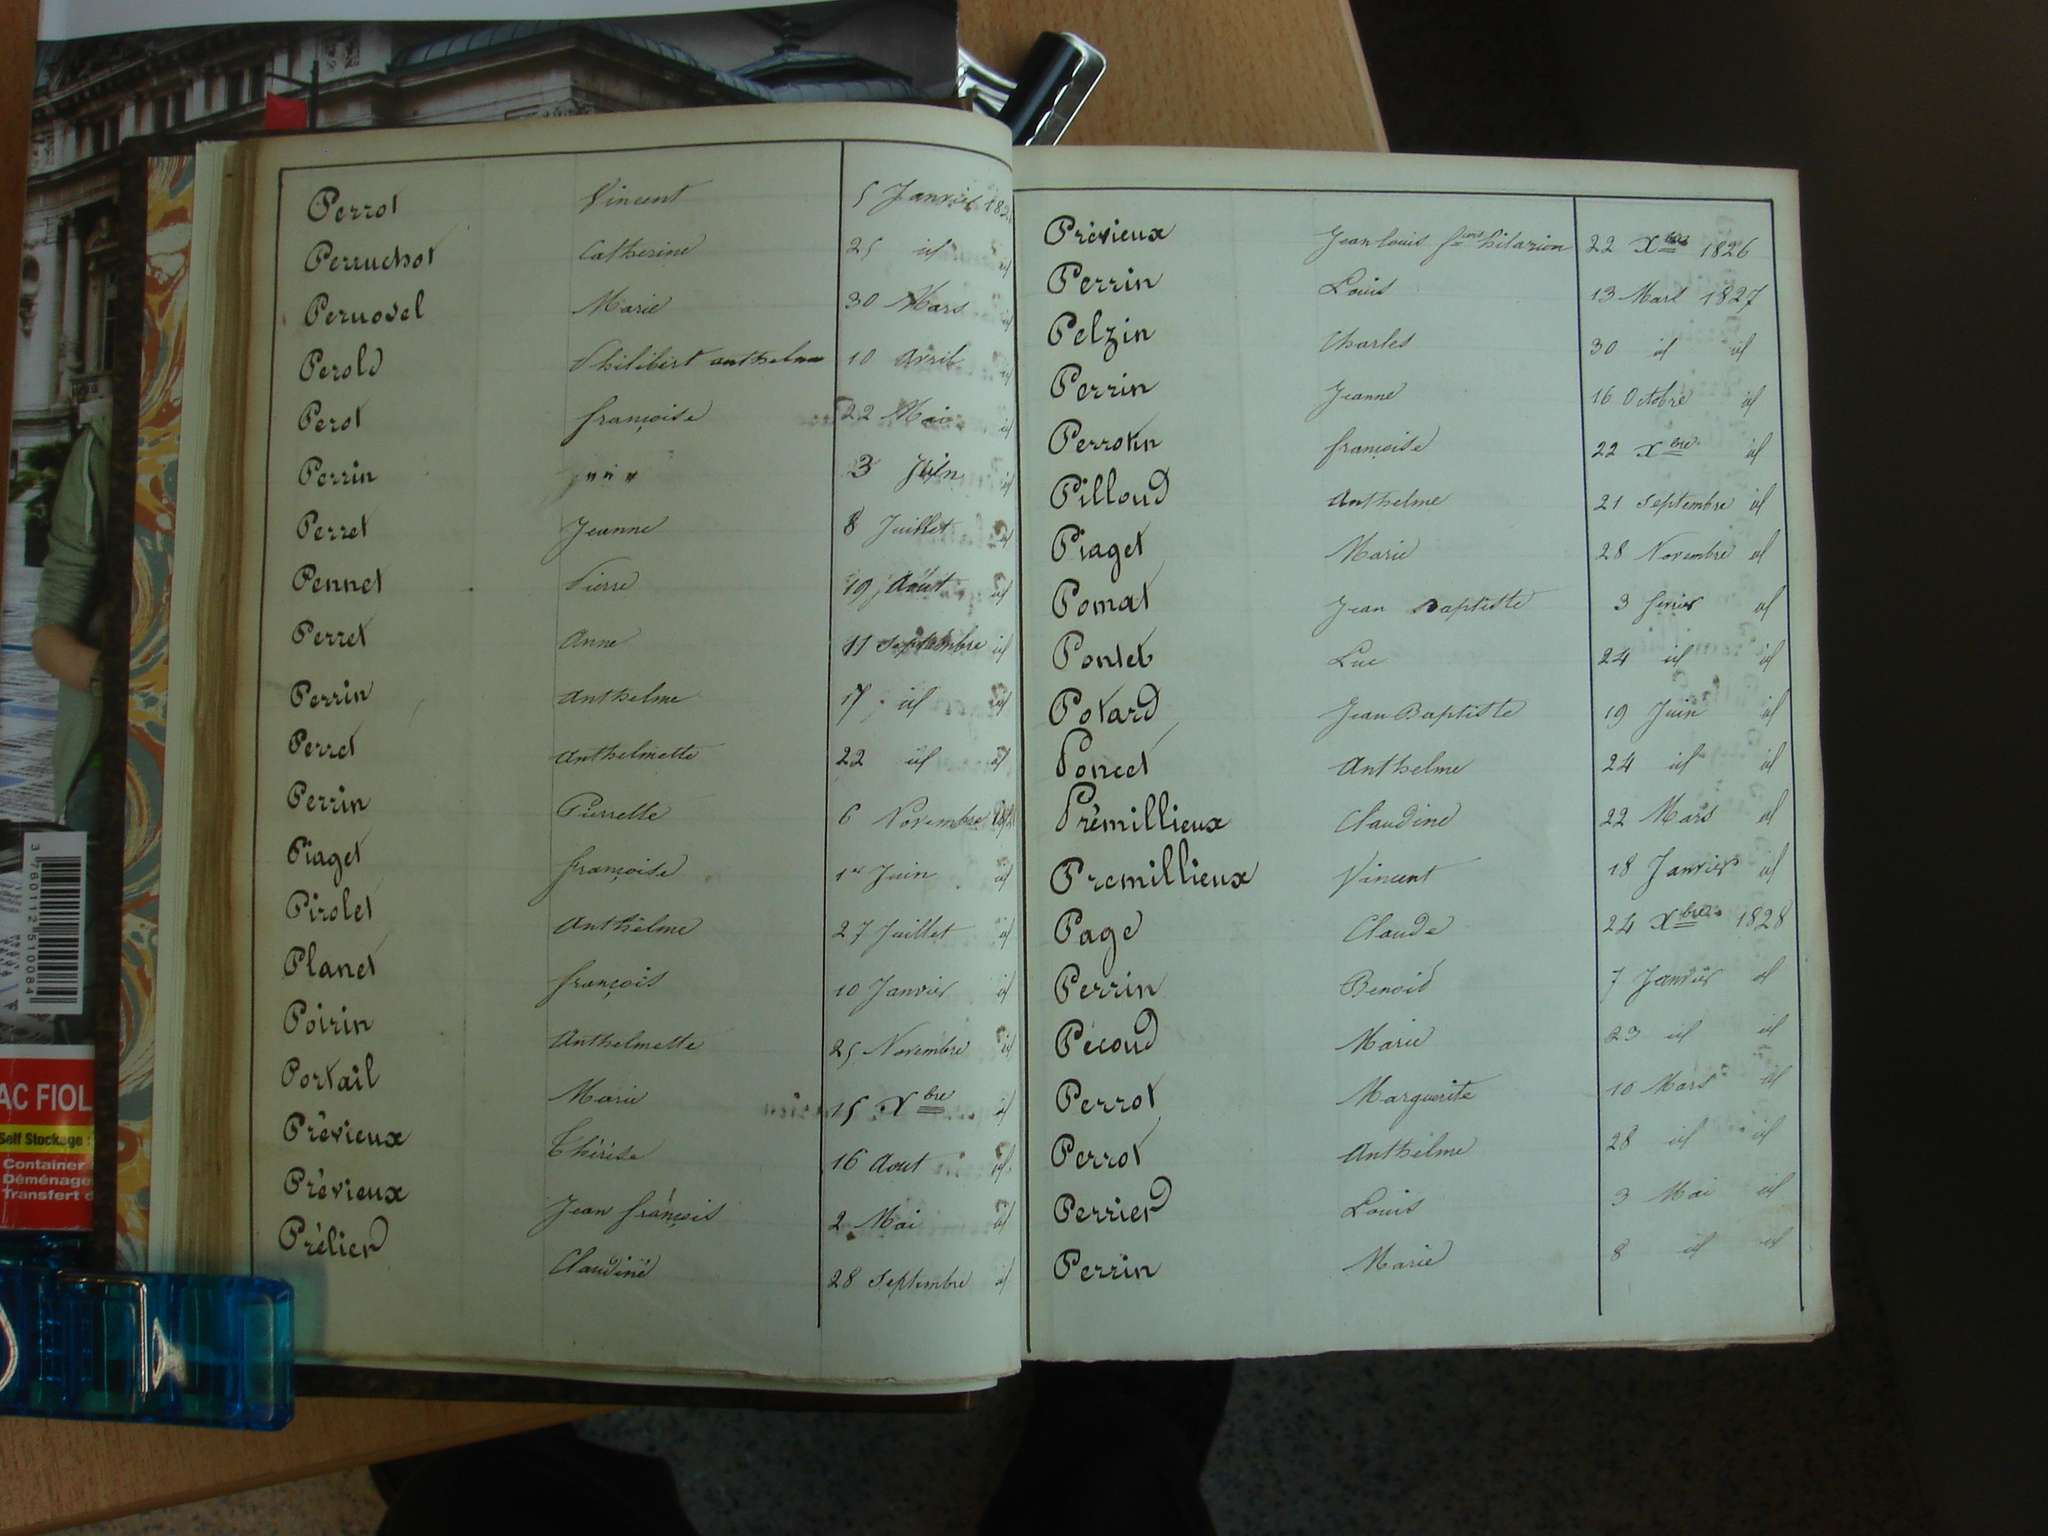 Perrot Vincent 5 Janvier 182
Perruchot Catherine 25 id id
Pernodel Marie 30 Mars id
Perold Philibert anthelme 10 Avril id
Perot françoise 22 Mai id
Perrin " " " 3 Juin id
Perret Jeanne 8 Juillet id
Pennet Pierre 19 Août id
Perret Anne 11 Septembre id
Perrin Anthelme 17 id id
Perret Anthelmette 22 id id
Perrin Pierrette 6 Novembre 182
Piaget françoise 1er Juin id
Pirolet Anthelme 27 Juillet id
Planet françois 10 Janvier id
Poirin Anthelmette 25 Novembre id
Portail Marie 15 Xbre id
Prévieux Thérèse 16 Aout id
Prévieux Jean françois 2 Mai id
Prélier Claudine 28 Septembre id
Prévieux Jean Louis fçois hilarion 22 Xbre 1826
Perrin Louis 13 Mars 1827
Pelzin Charles 30 id id
Perrin Jeanne 16 Octobre id
Perrotin françoise 22 Xbre id
Pilloud Anthelme 21 Septembre id
Piaget Marie 28 Novembre id
Pomat Jean Baptiste 3 fevrier id
Pontet Luc 24 id id
Potard Jean Baptiste 19 Juin id
Poncet Anthelme 24 id id
Prémillieux Claudine 22 Mars id
Premillieux Vincent 18 Janvier id
Page Claude 24 Xbre 1828
Perrin Benoid 7 Janvier id
Pécoud Marie 23 id id
Perrot Marguerite 10 Mars id
Perrot Anthelme 28 id id
Perrier Louis 3 Mai id
Perrin Marie 8 id id
3 760112 510084
AC FIOL
Self Stockage :
Container
Déménage
Transfert d